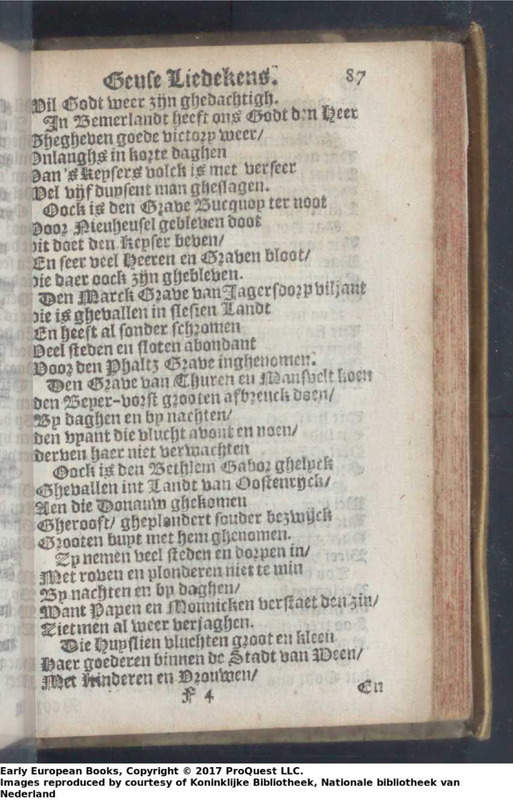 Geuse Liedekens. 87
Wil Godt weer zijn ghedachtigh.
In Bemerlandt heeft ons Godt den Heer
Ghegheven goede victory weer/
Onlanghs in korte daghen
Van 's Keysers volck is met verseer
Wel vijf duysent man gheslagen.
Oock is den Grave Bucquoy ter noot
Voor Nieuheusel gebleven doot
dit doet den Keyser beven/
En seer veel Heeren en Graven bloot/
die daer oock zijn ghebleven.
Den Marck Grave van Jagersdorp viljant
die is ghevallen in slesien Landt
En heeft al sonder schromen
Veel steden en sloten abondant
Voor den Phaltz Grave inghenomen.
Den Grave van Thuren en Mansvelt koen
den Beyer-vorst grooten afbreuck doen/
By daghen en by nachten/
den vyant die vlucht avont en noen/
derven haer niet verwachten
Oock is den Bethlem Gabor ghelyck
Ghevallen int Landt van Oostenryck/
Aen die Donauw ghekomen
Gherooft/ gheplondert sonder bezwijck
Grooten buyt met hem ghenomen.
Zy nemen veel steden en dorpen in/
Met roven en plonderen niet te min
By nachten en by daghen/
Want Papen en Monnicken verstaet den zin/
Zietmen al weer verjaghen.
Die Huyslien vluchten groot en kleen
Haer goederen binnen de Stadt van Ween/
Met kinderen en Vrouwen/
F 4 En
Early European Books, Copyright © 2017 ProQuest LLC.
Images reproduced by courtesy of Koninklijke Bibliotheek, Nationale bibliotheek van
Nederland